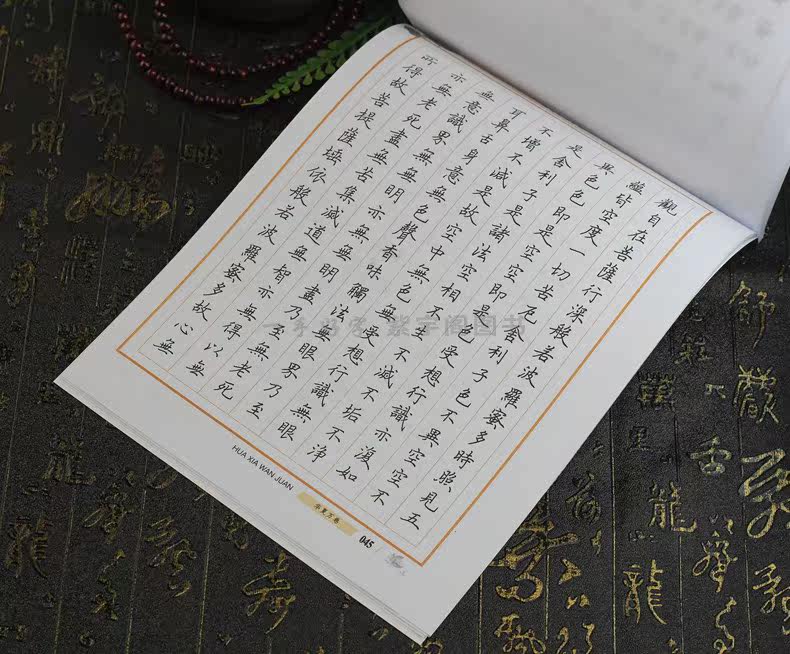 觀自在菩薩行深般若波羅蜜多時照見五
蘊皆空度一切苦厄舍利子色不異空空不
異色色即是空空即是色受想行識亦復如
是舍利子是諸法空相不生不滅不垢不淨
不增不減是故空中無色無受想行識無眼
耳鼻舌身意無色聲香味觸法無眼界乃至
無意識界無無明亦無無明盡乃至無老死
亦無老死盡無苦集滅道無智亦無得以無
所得故菩提薩埵依般若波羅蜜多故心無
HUA XIA WAN JUAN
华夏万卷
045
紫宇阁图书